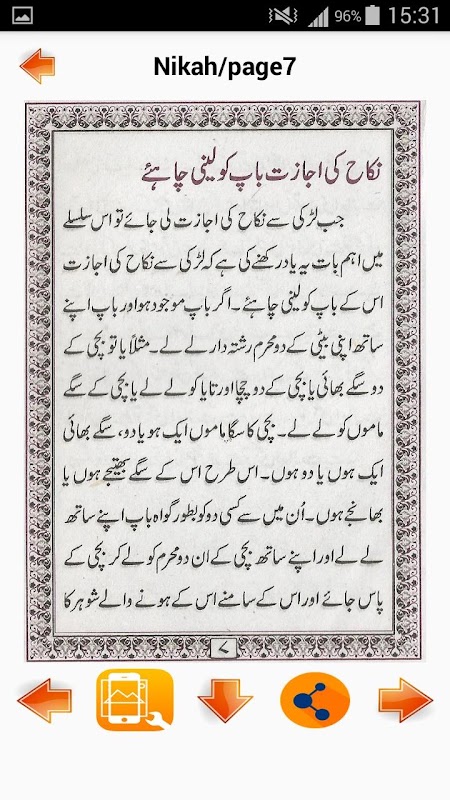 96% 15:31
Nikah/page7
نکاح کی اجازت باپ کو لینی چاہئے
جب لڑکی سے نکاح کی اجازت لی جائے تو اس سلسلے
میں اہم بات یہ یاد رکھنے کی ہے کہ لڑکی سے نکاح کی اجازت
اس کے باپ کو لینی چاہئے۔ اگر باپ موجود ہو اور باپ اپنے
ساتھ اپنی بیٹی کے دو محرم رشتہ دار لے لے۔ مثلاً یا تو بچی کے
دو سگے بھائی یا بچی کے دو چچا اور تایا کو لے لے یا بچی کے سگے
ماموں کو لے لے۔ بچی کا سگا ماموں ایک ہو یا دو، سگے بھائی
ایک ہوں یا دو ہوں۔ اس طرح اس کے سگے بھتیجے ہوں یا
بھانجے ہوں۔ اُن میں سے کسی دو کو بطور گواہ باپ اپنے ساتھ
لے لے اور اپنے ساتھ بچی کے ان دو محرم کو لے کر بچی کے
پاس جائے اور اس کے سامنے اس کے ہونے والے شوہر کا
۷